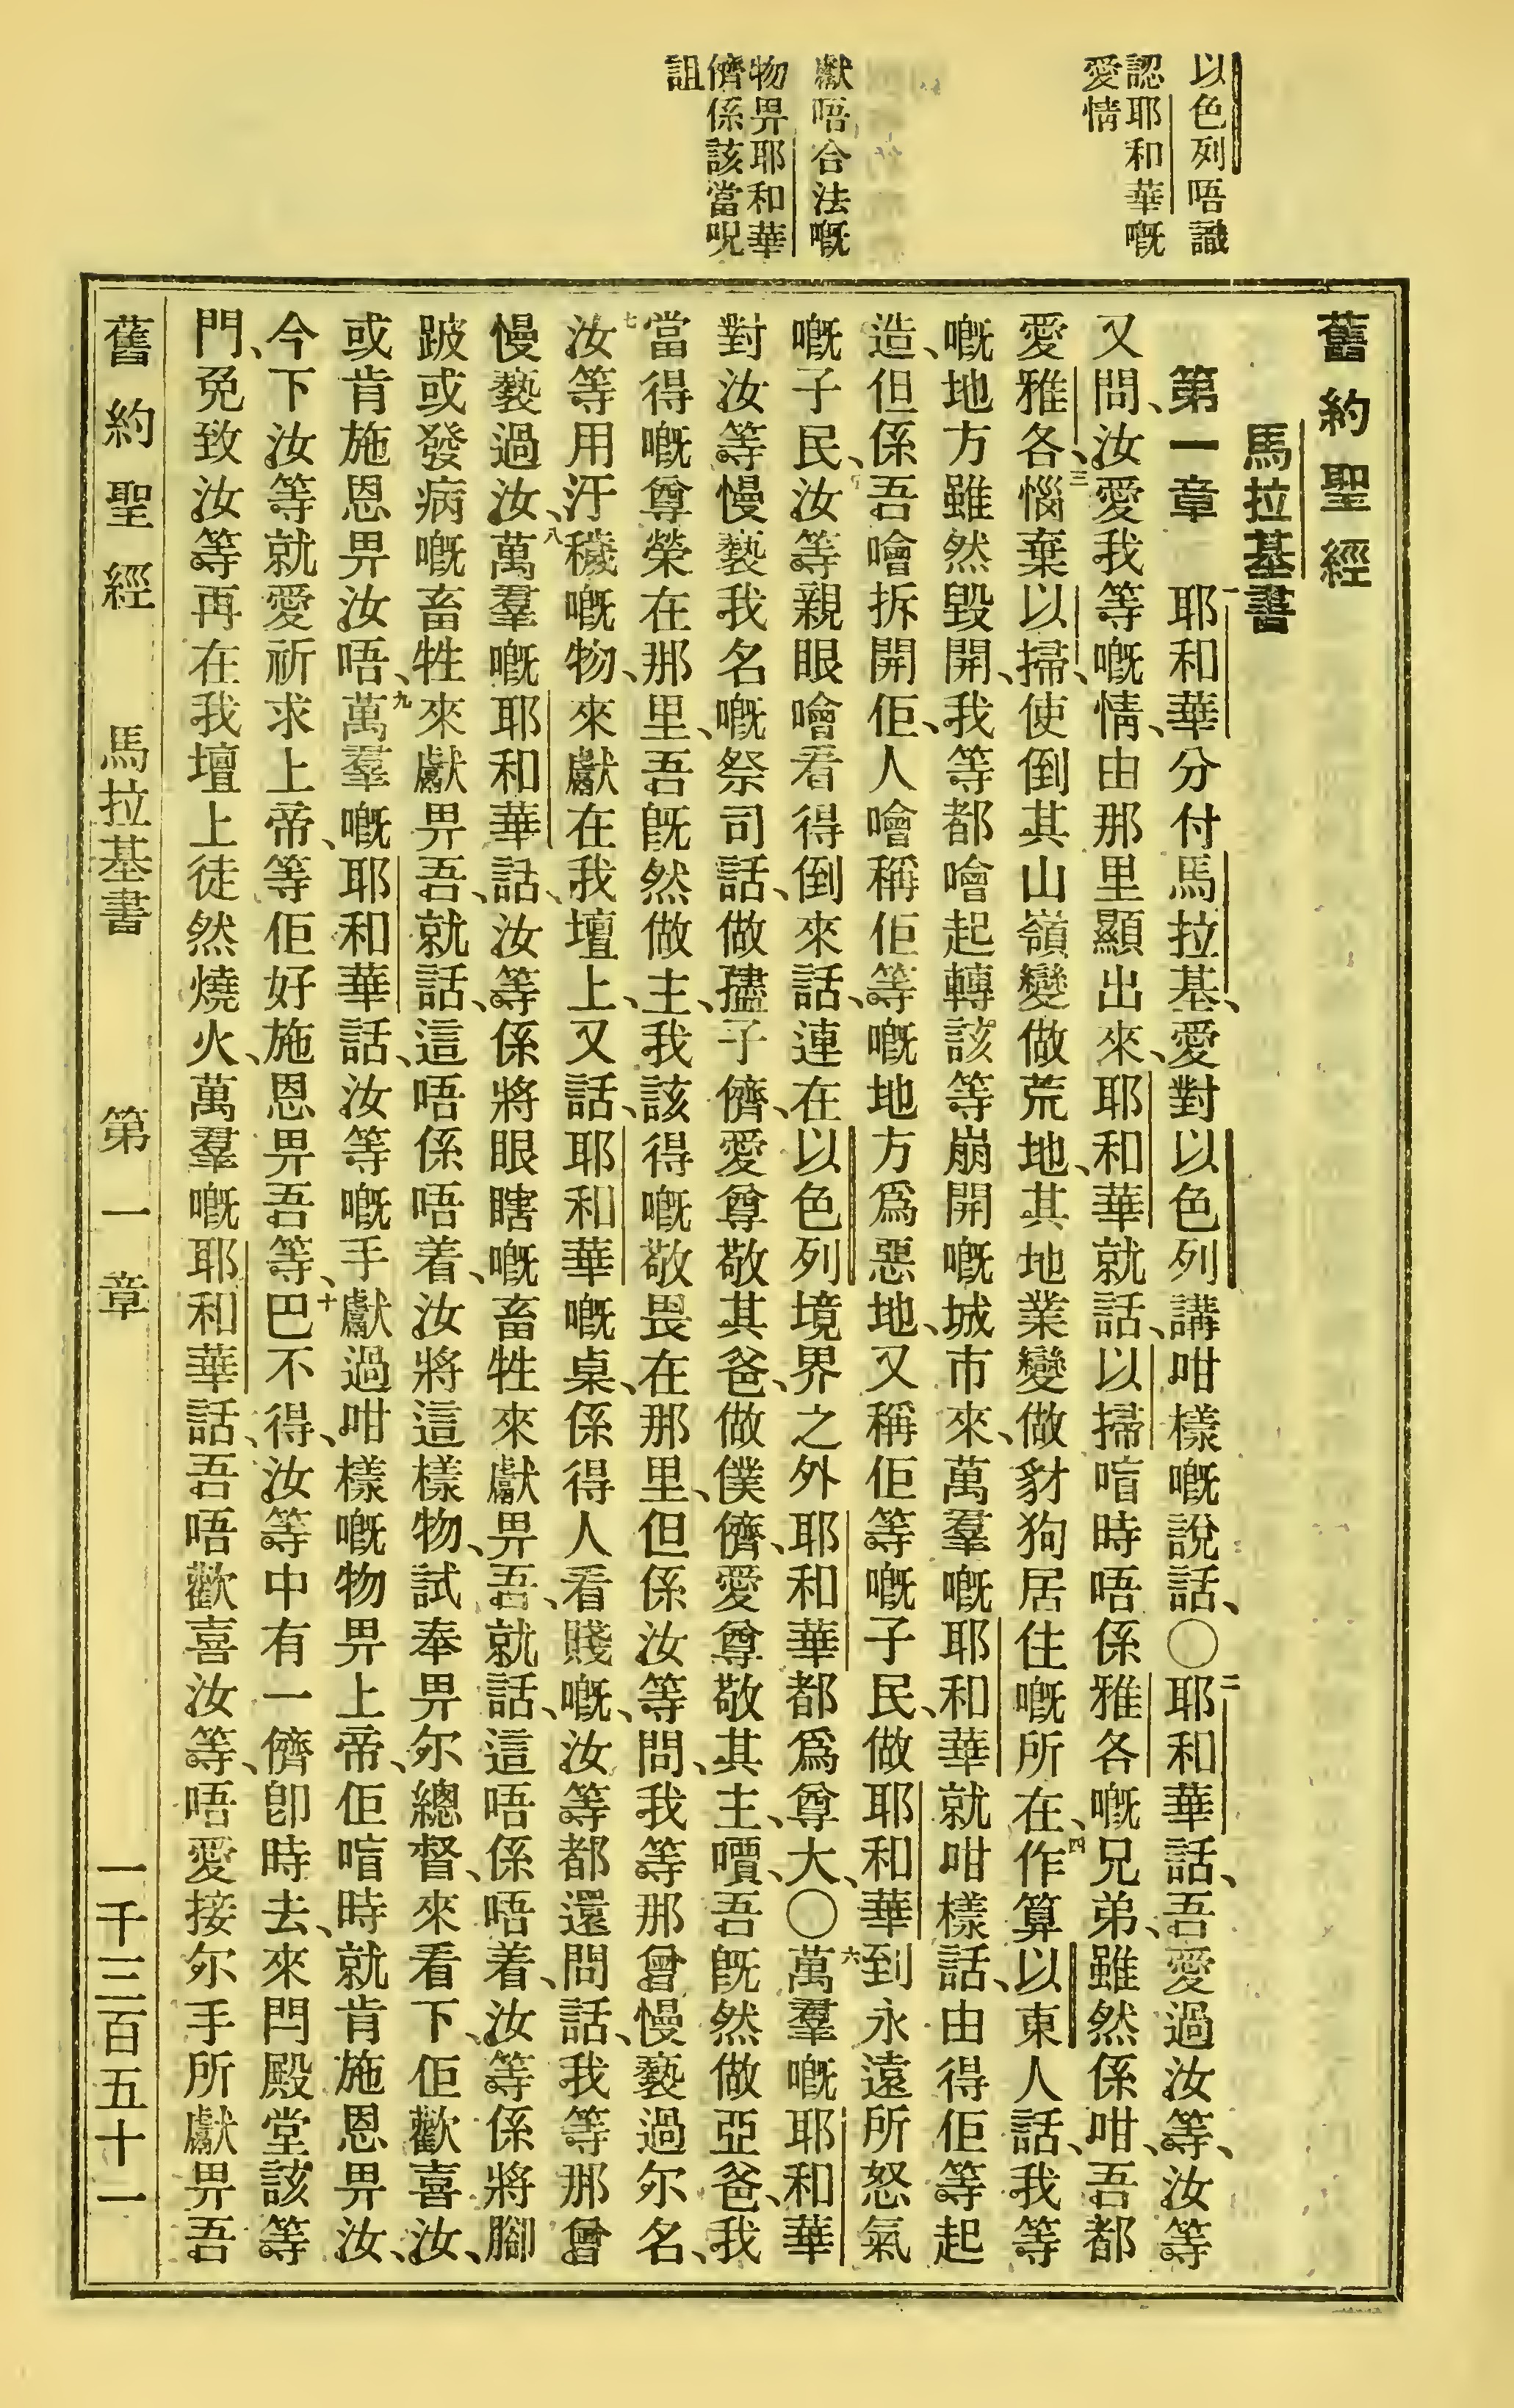 以色列唔識
認耶和華嘅
愛情
獻唔合法嘅
物畀耶和華
儕係該當呪
詛
舊約聖經
馬拉基書
第一章 一耶和華分付馬拉基、愛對以色列講咁樣嘅說話、〇二耶和華話、吾愛過汝等、汝等
又問、汝愛我等嘅情、由那里顯出來、耶和華就話、以掃喑時唔係雅各嘅兄弟、雖然係咁、吾都
愛雅各、三惱棄以掃、使倒其山嶺變做荒地、其地業變做豺狗居住嘅所在、四作算以東人話、我等
嘅地方雖然毀開、我等都噲起轉該等崩開嘅城市來、萬羣嘅耶和華就咁樣話、由得佢等起
造、但係吾噲拆開佢、人噲稱佢等嘅地方爲惡地、又稱佢等嘅子民、做耶和華到永遠所怒氣
嘅子民、汝等親眼噲看得倒來話、連在以色列境界之外耶和華都爲尊大、〇六萬羣嘅耶和華
對汝等慢褻我名嘅祭司話、做孻子儕、愛尊敬其爸、做僕儕、愛尊敬其主、嘳、吾旣然做亞爸、我
當得嘅尊榮在那里、吾旣然做主、我該得嘅敬畏在那里、但係汝等問、我等那曾慢褻過尔名、
七汝等用汙穢嘅物、來獻在我壇上、又話、耶和華嘅桌、係得人看賤嘅、汝等都還問話、我等那曾
慢褻過汝、八萬羣嘅耶和華話、汝等係將眼瞎嘅畜牲來獻畀吾、就話、這唔係唔着、汝等係將腳
跛或發病嘅畜牲、來獻畀吾、就話、這唔係唔着、汝將這樣物、試奉畀尔總督、來看下、佢歡喜汝、
或肯施恩畀汝唔、九萬羣嘅耶和華話、汝等嘅手獻過咁樣嘅物畀上帝、佢喑時就肯施恩畀汝、
今下汝等就愛祈求上帝、等佢好施恩畀吾等、十巴不得、汝等中有一儕卽時去、來閂殿堂該等
門、免致汝等再在我壇上徒然燒火、萬羣嘅耶和華話、吾唔歡喜汝等、唔愛接尔手所獻畀吾
舊約聖經 馬拉基書 第一章 一千三百五十一